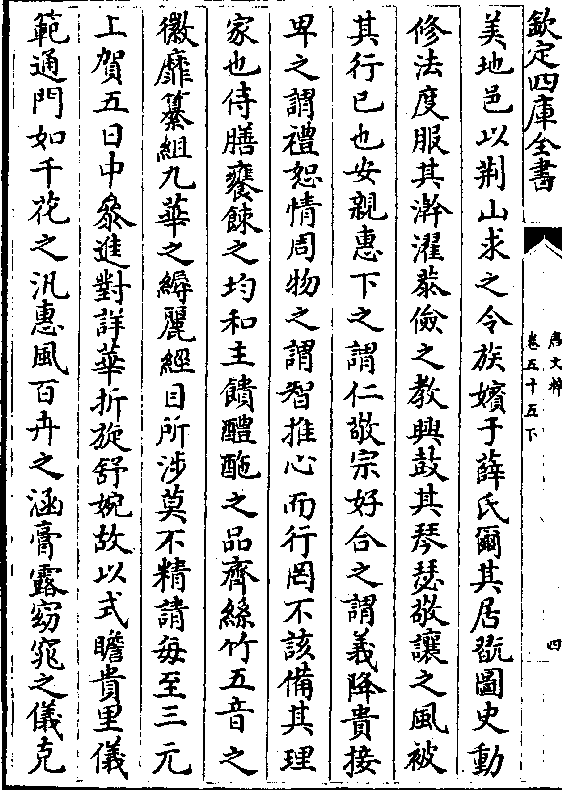 欽定四庫全書
唐文粹
卷五十五下
四
美地邑以荆山求之令族嬪于薛氏爾其居翫圖史動
修法度服其澣濯恭儉之教興鼓其琴瑟敬讓之風被
其行已也安親惠下之謂仁敬宗好合之謂義降貴接
卑之謂禮恕情周物之謂智推心而行罔不該備其理
家也侍膳饔餗之均和主饋醴酏之品齊絲竹五音之
徽靡纂組九華之縟麗經目所涉莫不精請每至三元
上賀五日中參進對詳華折旋舒婉故以式瞻貴里儀
範通門如千花之汎惠風百卉之涵膏露窈窕之儀克